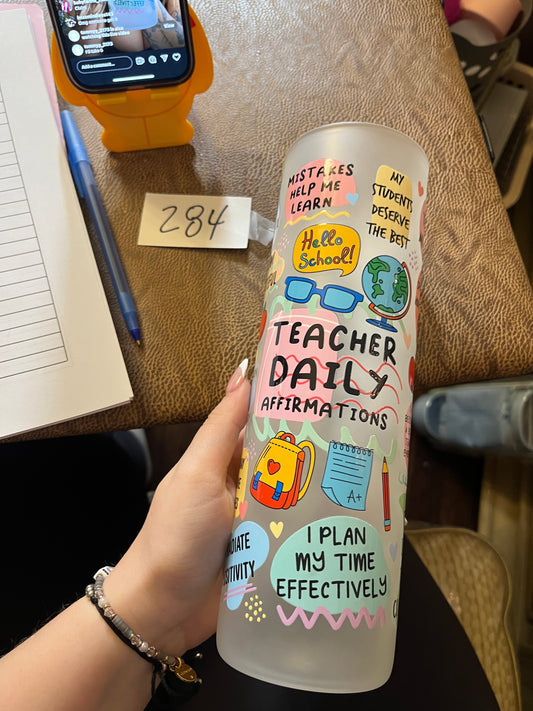 EFFECTIVELY
Add a comment...
284
MISTAKES
HELP ME
LEARN
MY
STUDENTS
DESERVE
THE BEST
Hello
School!
TEACHER
DAILY
AFFIRMATIONS
A+
I PLAN
MY TIME
EFFECTIVELY